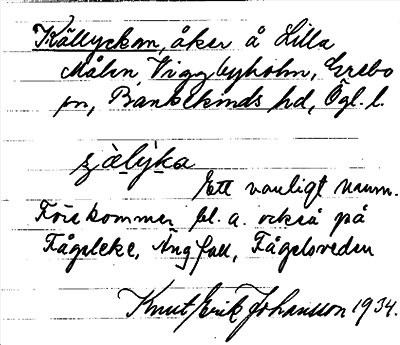 Källyckan, åker å Lilla
Målen, Viggbyholm, Grebo
sn, Bankekinds hd, Ögl. l.
Ett vanligt namn.
Förekommer bl. a. också på
Fågeleke, Ängfall, Fågelsveden
Knut Erik Johansson 1934.